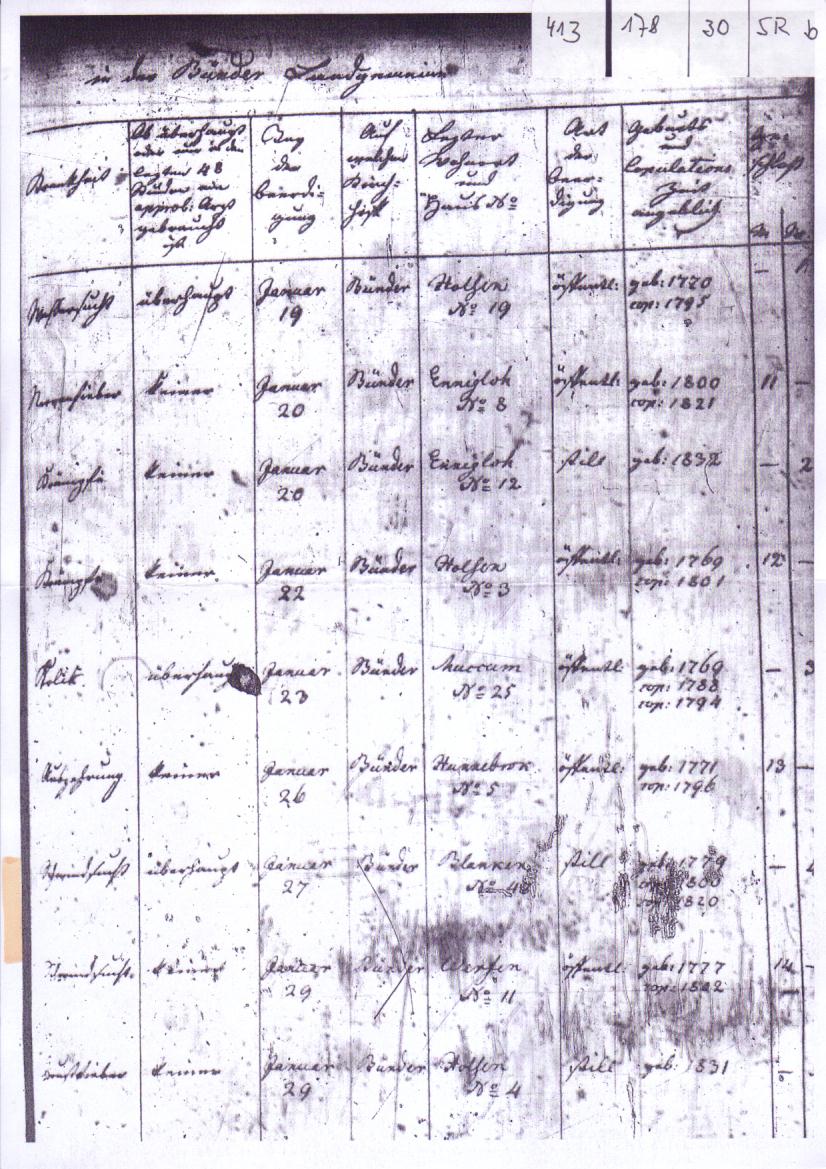 413 178 30 SR b
in der Bünder Landgemeinde
Krankheit
Ob überhaupt
oder nur in den
letzten 48
Stunden ein
approb: Arzt
gebraucht
ist
Tag
der
Beerdi-
gung
Auf
welchem
Kirch-
hofe
Letzter
Wohnort
und
Haus No
Art
der
Beer-
digung
Geburts
und
Copulations
Zeit
angeblich
Ge-
schlecht
Wassersucht überhaupt Januar Bünder Holsen öffentl: geb: 1770 – 1
19 No 19 cop: 1795
Nervenfieber keiner Januar Bünder Ennigloh öffentl: geb: 1800 11 –
20 No 8 cop: 1821
Krämpfe keiner Januar Bünder Ennigloh still geb: 1832 – 2
20 No 12
Krämpfe keiner Januar Bünder Holsen öffentl: geb: 1769 12 –
22 No 3 cop: 1801
Kolik überhaupt Januar Bünder Muccum öffentl geb: 1769 – 3
23 No 25 cop: 1788
cop: 1794
Auszehrung keiner Januar Bünder Hunnebrok öffentl: geb: 1771 13 –
26 No 5 cop: 1796
Schwindsucht überhaupt Januar Bünder still geb: 1779 – 4
27 No cop: 1800
cop: 1820
Schwindsucht keiner Januar Bünder Werfen öffentl: geb: 1777 14 –
29 No 11 cop: 1802
keiner Januar Bünder Holsen still geb: 1831 –
29 No 4